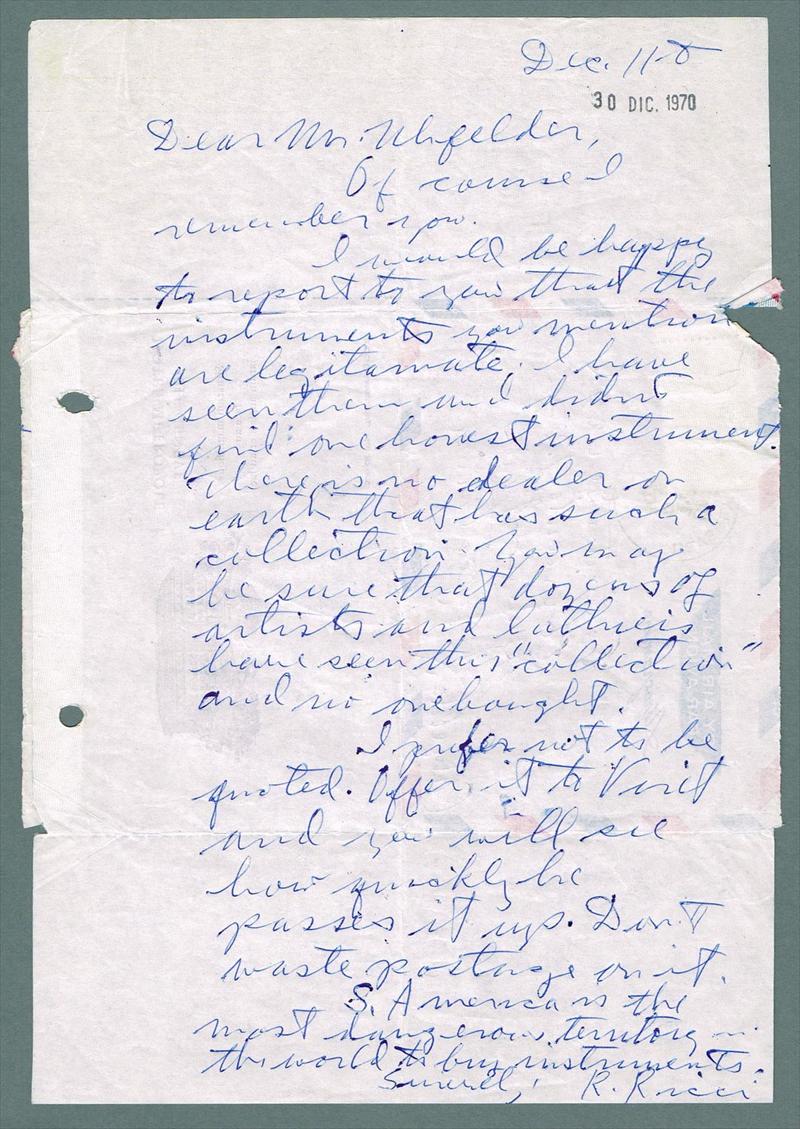 Dec. 11
30 DIC. 1970
Dear Mr. Uhfelder,
Of course I
remember you.
I would be happy
to report to you that the
instruments you mention
are legitamate. I have
seen them and didn't
find one honest instrument.
There is no dealer on
earth that has such a
collection. You may
be sure that dozens of
artists and luthiers
have seen this "collection"
and no one bought.
I prefer not to be
quoted. Offer it to
and you will see
how quickly he
passes it up. Don't
waste postage on it.
S. America is the
most dangerous territory in
the world to buy instruments.
Sincerely, R. Ricci